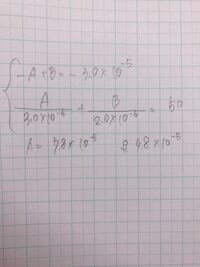 -A+B=-3.0×10^-5
A/3.0×10^-6 + B/2.0×10^-6 = 50
A= 7.8×10^-5 B 4.8×10^-5